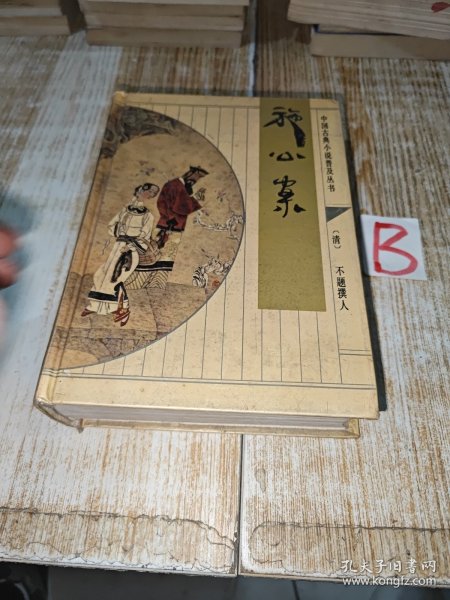 施公案
中国古典小说普及丛书
（清） 不题撰人
B
孔夫子旧书网
www.kongfz.com